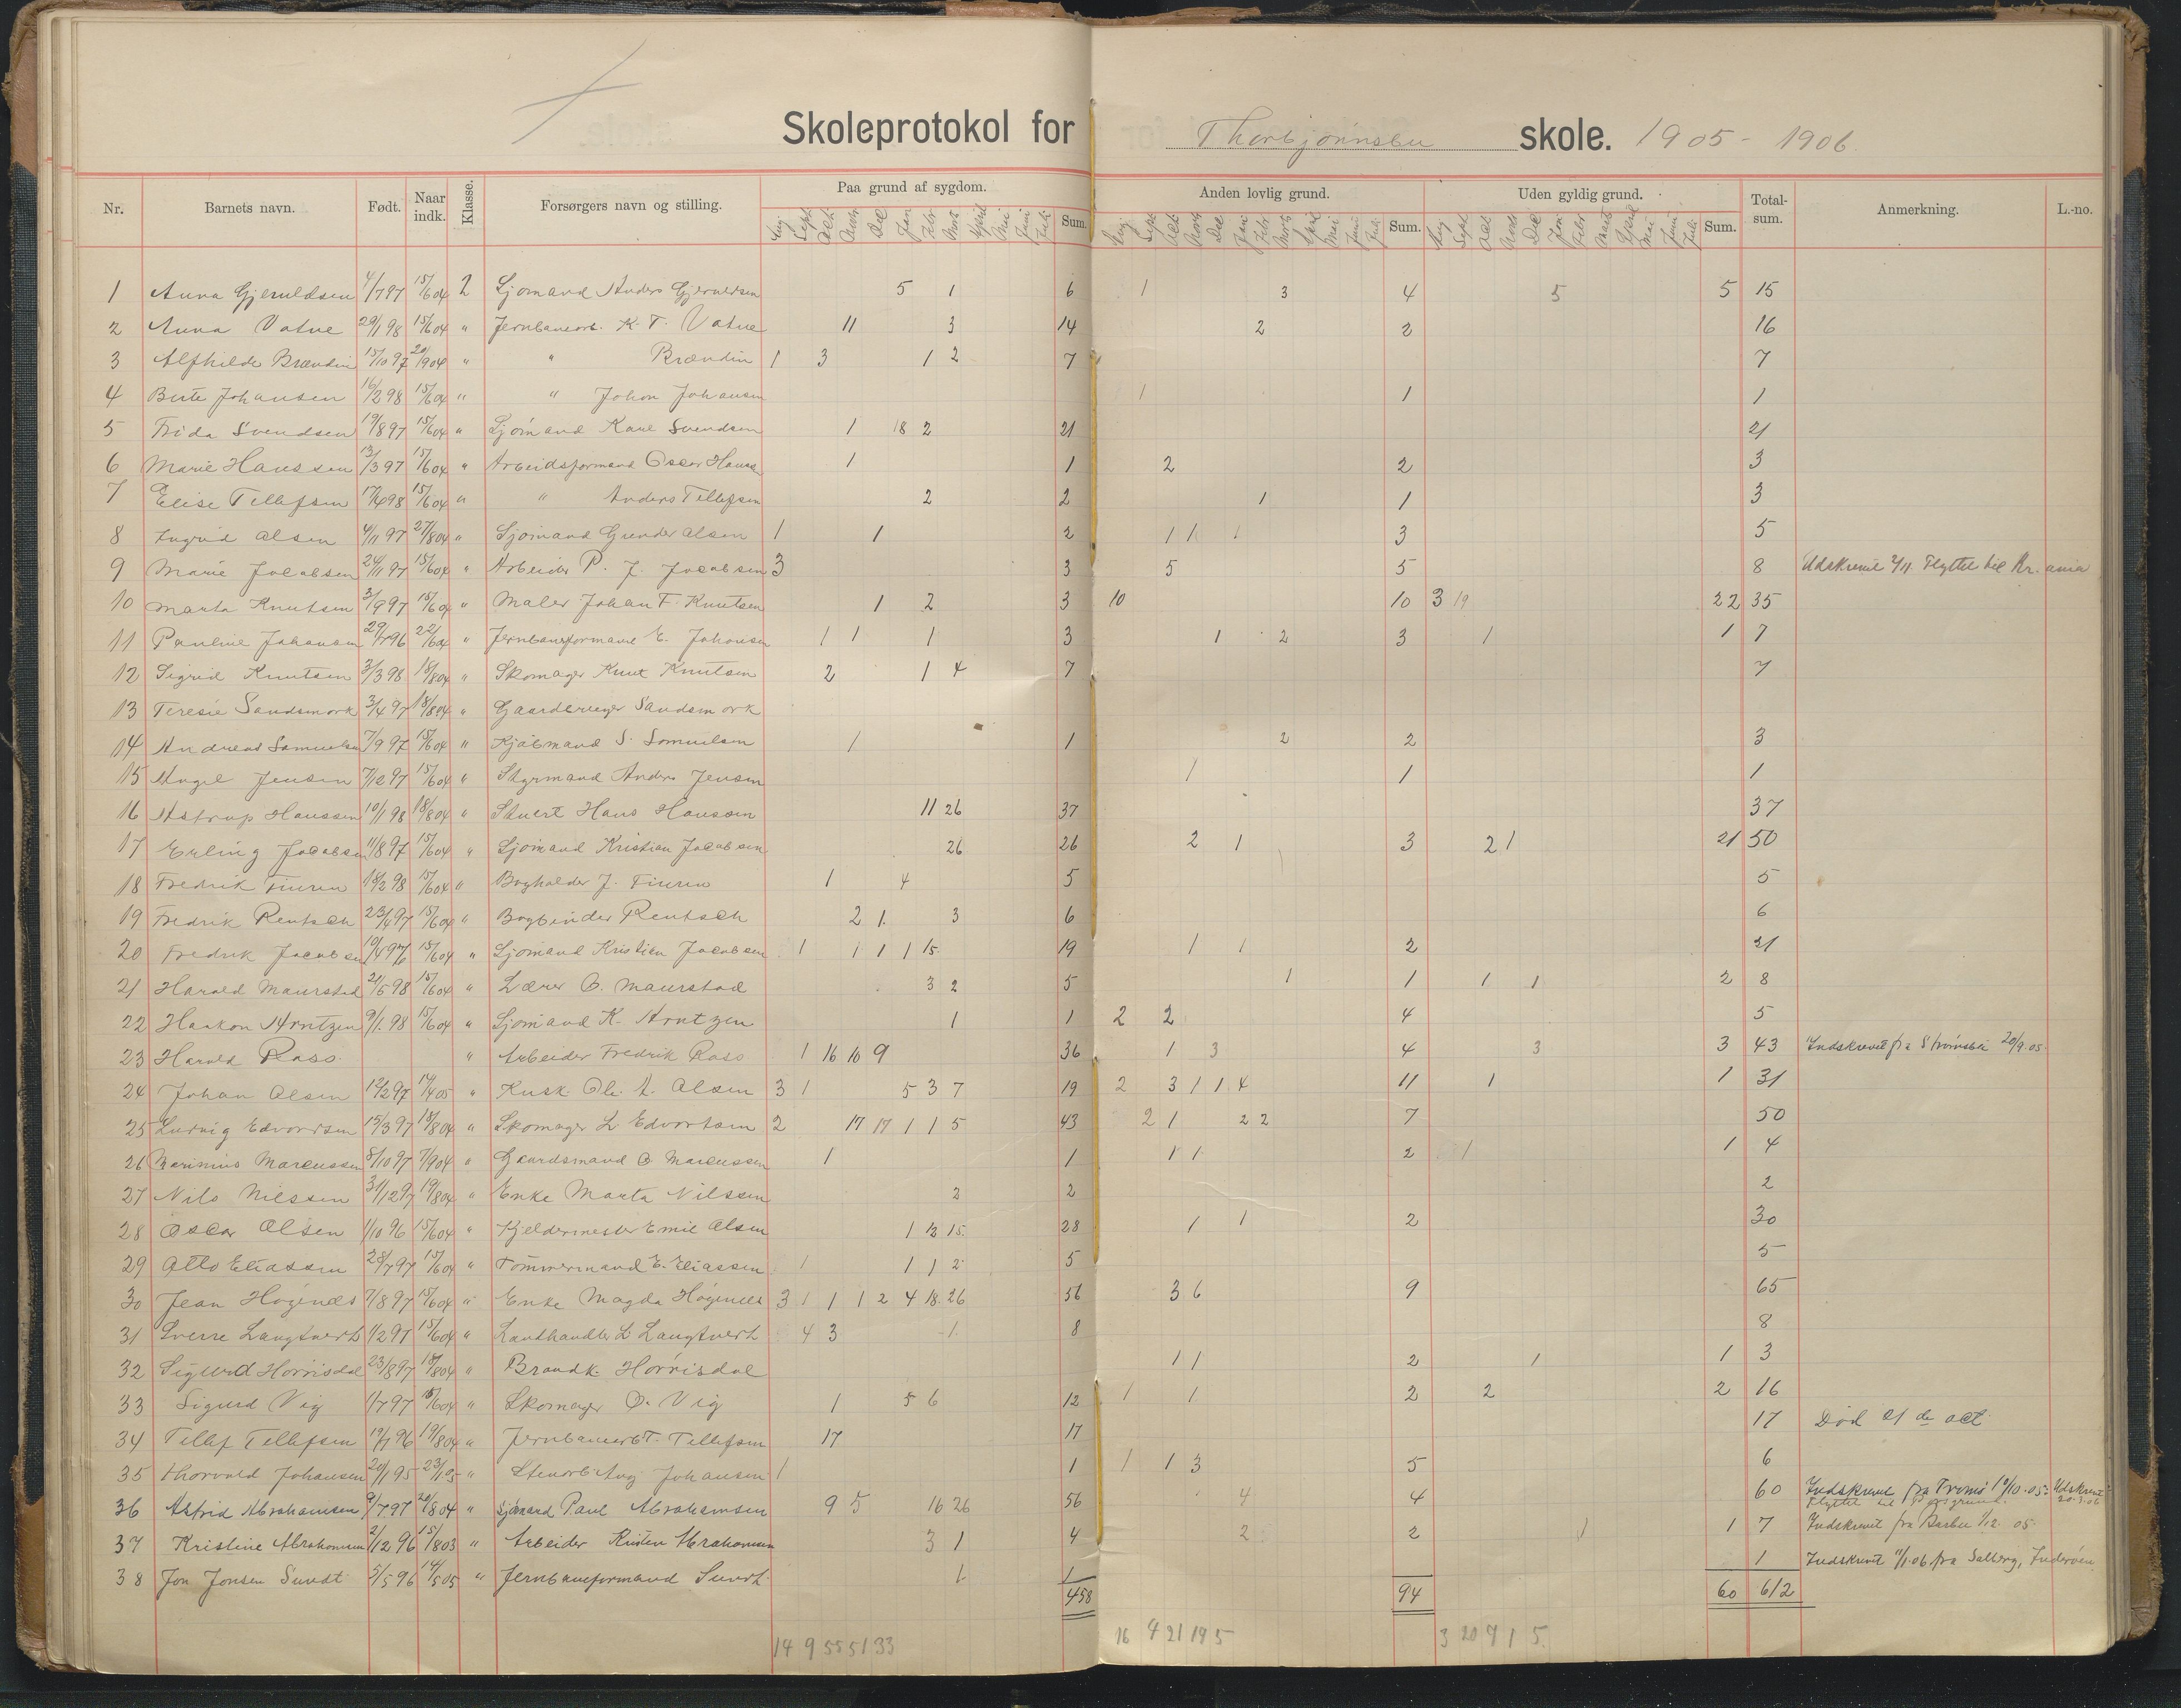 Skoleprotokol for Thorbjørnsbu skole. 1905 - 1906.
Nr. Barnets navn. Født. Naar indk. Klasse. Forsørgers navn og stilling. Paa grund af sygdom. Sum. Anden lovlig grund. Sum. Uden gyldig grund. Sum. Total-sum. Anmerkning. L.-no.
Aug Sept Oct Nov Dec Jan Febr Marts April Mai Juni Juli
1 Anna Gjeruldsen 4/7 97 15/6 04 2 Sjømand Anders Gjeruldsen 5 1 6 1 3 4 5 5 15
2 Anna Vatne 29/1 98 15/6 04 " Jernbanearb. K. T. Vatne 11 3 14 2 2 16
3 Alfhilde Brændin 15/10 97 20/9 04 " " Brændin 1 3 1 2 7 7
4 Berte Johansen 16/2 98 15/6 04 " " Johan Johansen 1 1 1
5 Frida Svendsen 19/8 97 15/6 04 " Sjømand Karl Svendsen 1 18 2 21 21
6 Marie Hanssen 13/3 97 15/6 04 " Arbeidsformand Oscar Hanss. 1 1 2 2 3
7 Elise Tellefsen 17/6 98 15/6 04 " " Anders Tellefsen 2 2 1 1 3
8 Ingrid Olsen 4/11 97 27/8 04 " Sjømand Gunder Olsen 1 1 2 1 1 1 3 5
9 Marie Jacobsen 24/11 97 15/6 04 " Arbeider P. J. Jacobsen 3 3 5 5 8 Udskrevet 2/11 Flyttet til Kr.ania
10 Marta Knutsen 3/9 97 15/6 04 " Maler Johan F. Knutsen 1 2 3 10 10 3 19 22 35
11 Pauline Johansen 29/7 96 22/6 04 " Jernbaneformand E. Johansen 1 1 1 3 1 2 3 1 1 7
12 Sigrid Knutsen 3/3 98 18/8 04 " Skomager Knut Knutsen 2 1 4 7 7
13 Teresie Sandsmork 3/4 97 18/8 04 " Gaardbruger Sandsmork
14 Andreas Samuelsen 7/9 97 15/6 04 " Kjøbmand S. Samuelsen 1 1 2 2 3
15 Aagel Jensen 7/12 97 15/6 04 " Styrmand Anders Jensen 1 1 1
16 Astrup Hanssen 10/1 98 18/8 04 " Stuert Hans Hanssen 11 26 37 37
17 Erling Jacobsen 11/8 97 15/6 04 " Sjømand Kristian Jacobsen 26 26 2 1 3 21 21 50
18 Fredrik Fiuren 18/2 98 15/6 04 " Bogholder J. Fiuren 1 4 5 5
19 Fredrik Rentsch 23/4 97 15/6 04 " Bogbinder Rentsch 2 1 3 6 6
20 Fredrik Jacobsen 15/6 04 " Sjømand Kristian Jacobsen 1 1 1 1 15 19 1 1 2 21
21 Harald Maurstad 21/5 98 15/6 04 " Lærer O. Maurstad 3 2 5 1 1 1 1 2 8
22 Haakon Arntzen 9/1 98 15/6 04 " Sjømand K. Arntzen 1 1 2 2 4 5
23 Harald Rass " Arbeider Fredrik Rass 1 16 10 9 36 1 3 4 3 3 43 Indskrevet fra Strømsbu 20/9.05.
24 Johan Olsen 12/2 97 17/4 05 " Kusk Ole A. Olsen 3 1 5 3 7 19 2 3 1 1 4 11 1 1 31
25 Ludvig Edvardsen 15/3 97 18/8 04 " Skomager L Edvartsen 2 17 17 1 1 5 43 2 1 2 2 7 50
26 Marinius Marcussen 8/10 97 7/9 04 " Gaardsmand O. Marcussen 1 1 1 1 2 1 1 4
27 Nils Nilssen 31/12 97 19/8 04 " Enke Marta Nilssen 2 2 2
28 Oscar Olsen 1/10 96 15/6 04 " Kjeldermester Emil Olsen 1 12 15 28 1 1 2 30
29 Otto Eliassen 28/7 97 15/6 04 " Tømmermand E. Eliassen 1 1 1 2 5 5
30 Jean Høgenæs 7/8 97 15/6 04 " Enke Magda Høgenæs 3 1 1 1 2 4 18 26 56 3 6 9 65
31 Sverre Langtvert 1/2 97 15/6 04 " Landhandler L Langtvert 4 3 1 8 8
32 Sigurd Horrisdal 23/8 97 18/8 04 " Brandk. Horrisdal 1 1 2 1 1 3
33 Sigurd Vig 1/7 97 15/6 04 " Skomager O. Vig 1 5 6 12 1 1 2 2 2 16
34 Tellef Tellefsen 19/7 96 19/8 04 " Jernbanearb T. Tellefsen 17 17 17 Død 21 de oct.
35 Thorvald Johansen 20/1 95 23/1 95 " Stenarb. Aug Johansen 1 1 1 1 3 5 6
36 Astrid Abrahamsen 9/7 97 20/8 04 " Sjømand Paul Abrahamsen 9 5 16 26 56 4 4 60 Indskrevet fra Tromø 19/10.05. Udskrevet 20.3.06
Flyttet til Porsgrund.
37 Kristine Abrahamsen 2/12 96 15/8 03 " Arbeider Kristen Abrahamsen 3 1 4 2 2 1 1 7 Indskrevet fra Barbu 1/12 05.
38 Jon Jonsen Sundt 5/5 96 14/5 05 " Jernbaneformand Sundt 1 1 1 Indskrevet 11/1.06 fra Salberg, Inderøen
458 94 60 612
14 9 55 51 33 16 4 21 19 5 3 20 9 1 5.